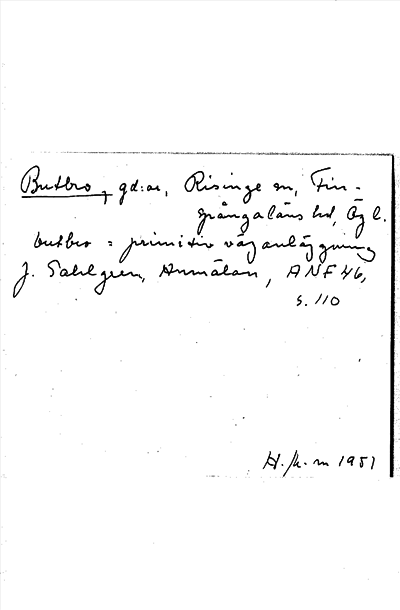 Butbro, gd:ar, Risinge sn, Fin-
spångaläns hd, Ög l.
butbro = primitiv väganläggning
J. Sahlgren, Anmälan, ANF 46,
s. 110
H. 1951